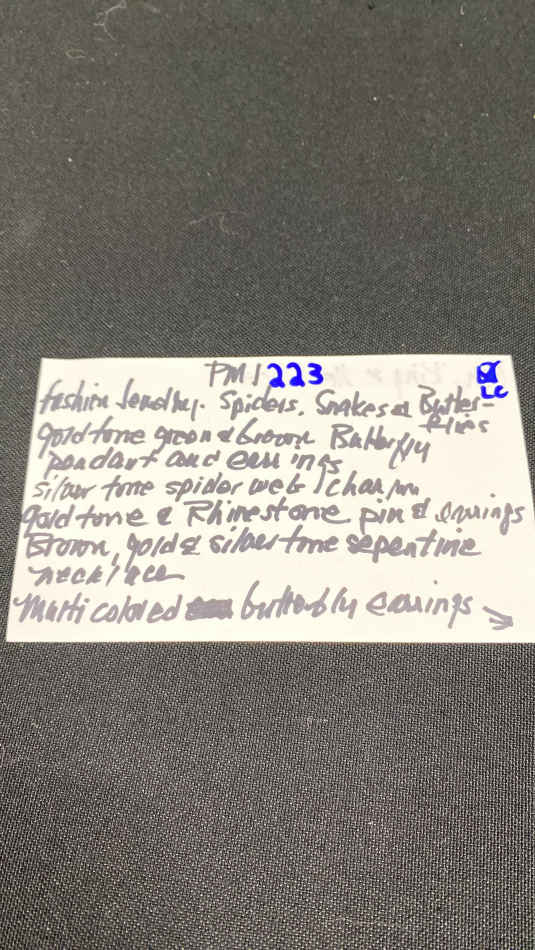 PM1 223
LC
fashion Jewelry. Spiders, Snakes & Butter-
flies
gold tone green & brown Butterfly
pendant and earrings
silver tone spider web / charm
gold tone & Rhinestone pin & earrings
Brown, gold & silver tone sepentine
necklace
Multi colored butterfly earrings →